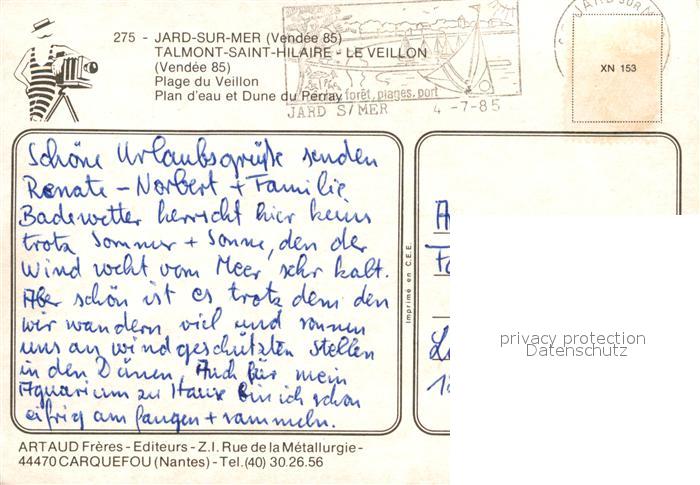 275 - JARD-SUR-MER (Vendée 85)
TALMONT-SAINT-HILAIRE - LE VEILLON
(Vendée 85)
Plage du Veillon
Plan d'eau et Dune du Perray
forêt, plages, port
JARD S/MER 4-7-85
JARD SUR M
XN 153
Schöne Urlaubsgrüße senden
Renate - Norbert + Familie
Badewetter herrscht hier keins
trotz Sommer + Sonne, den der
Wind weht vom Meer sehr kalt.
Aber schön ist es trotz dem den
wir wandern viel und sonnen
uns an windgeschützten Stellen
in den Dünen, Auch für mein
Aquarium zu Hause bin ich schon
eifrig am fangen + sammeln.
Imprimé en C.E.E.
privacy protection
Datenschutz
ARTAUD Frères - Editeurs - Z.I. Rue de la Métallurgie -
44470 CARQUEFOU (Nantes) - Tel. (40) 30.26.56